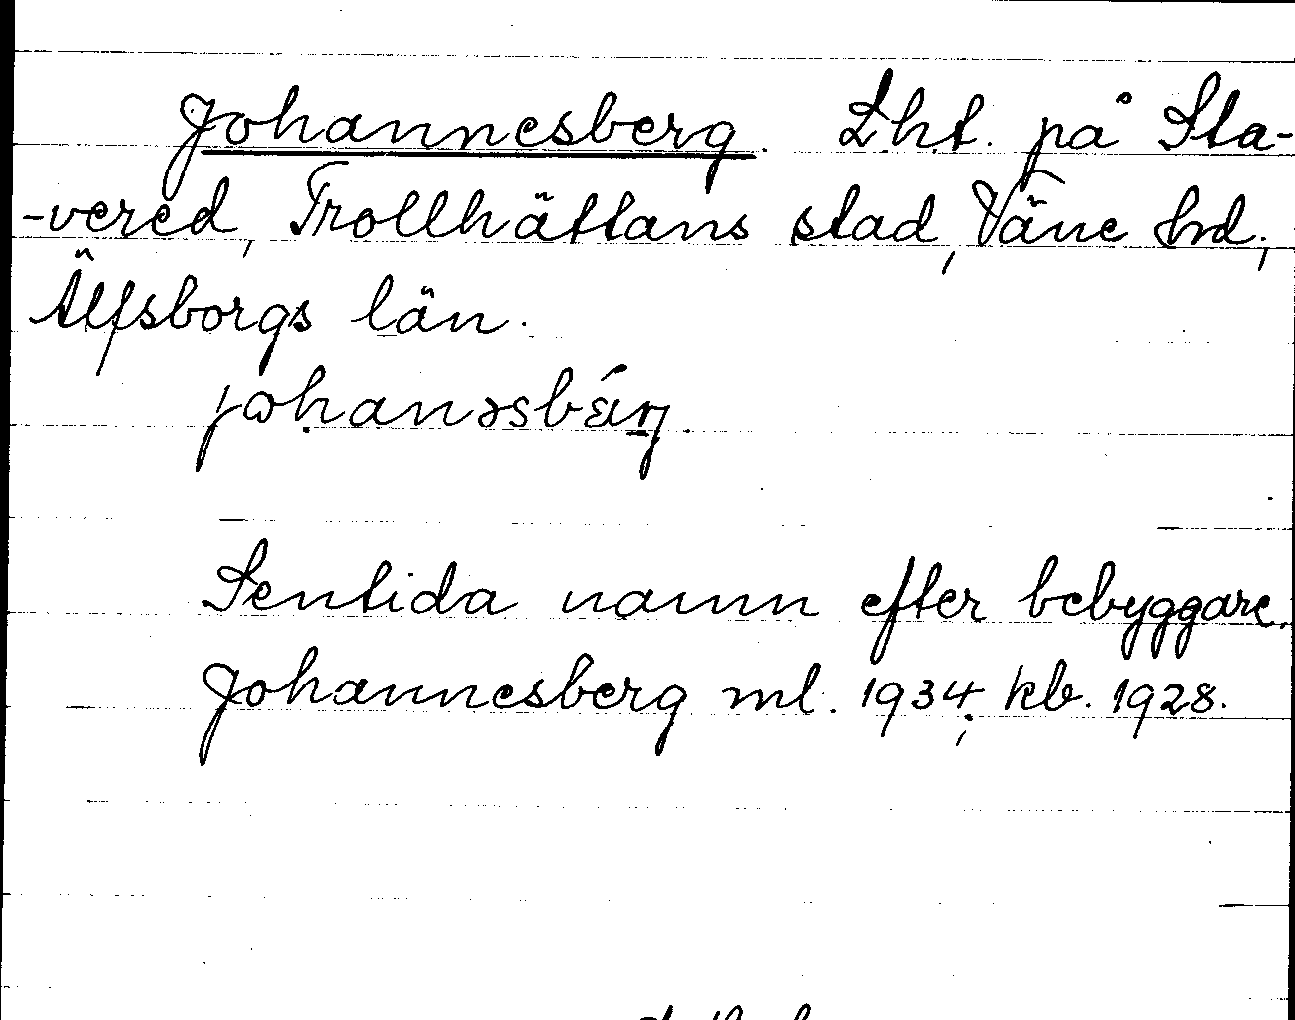 Johannesberg. Lht. på Sta-
-vered, Trollhättans stad, Väne hd.,
Älfsborgs län.
Sentida namn efter bebyggare.
Johannesberg ml. 1934; kb. 1928.